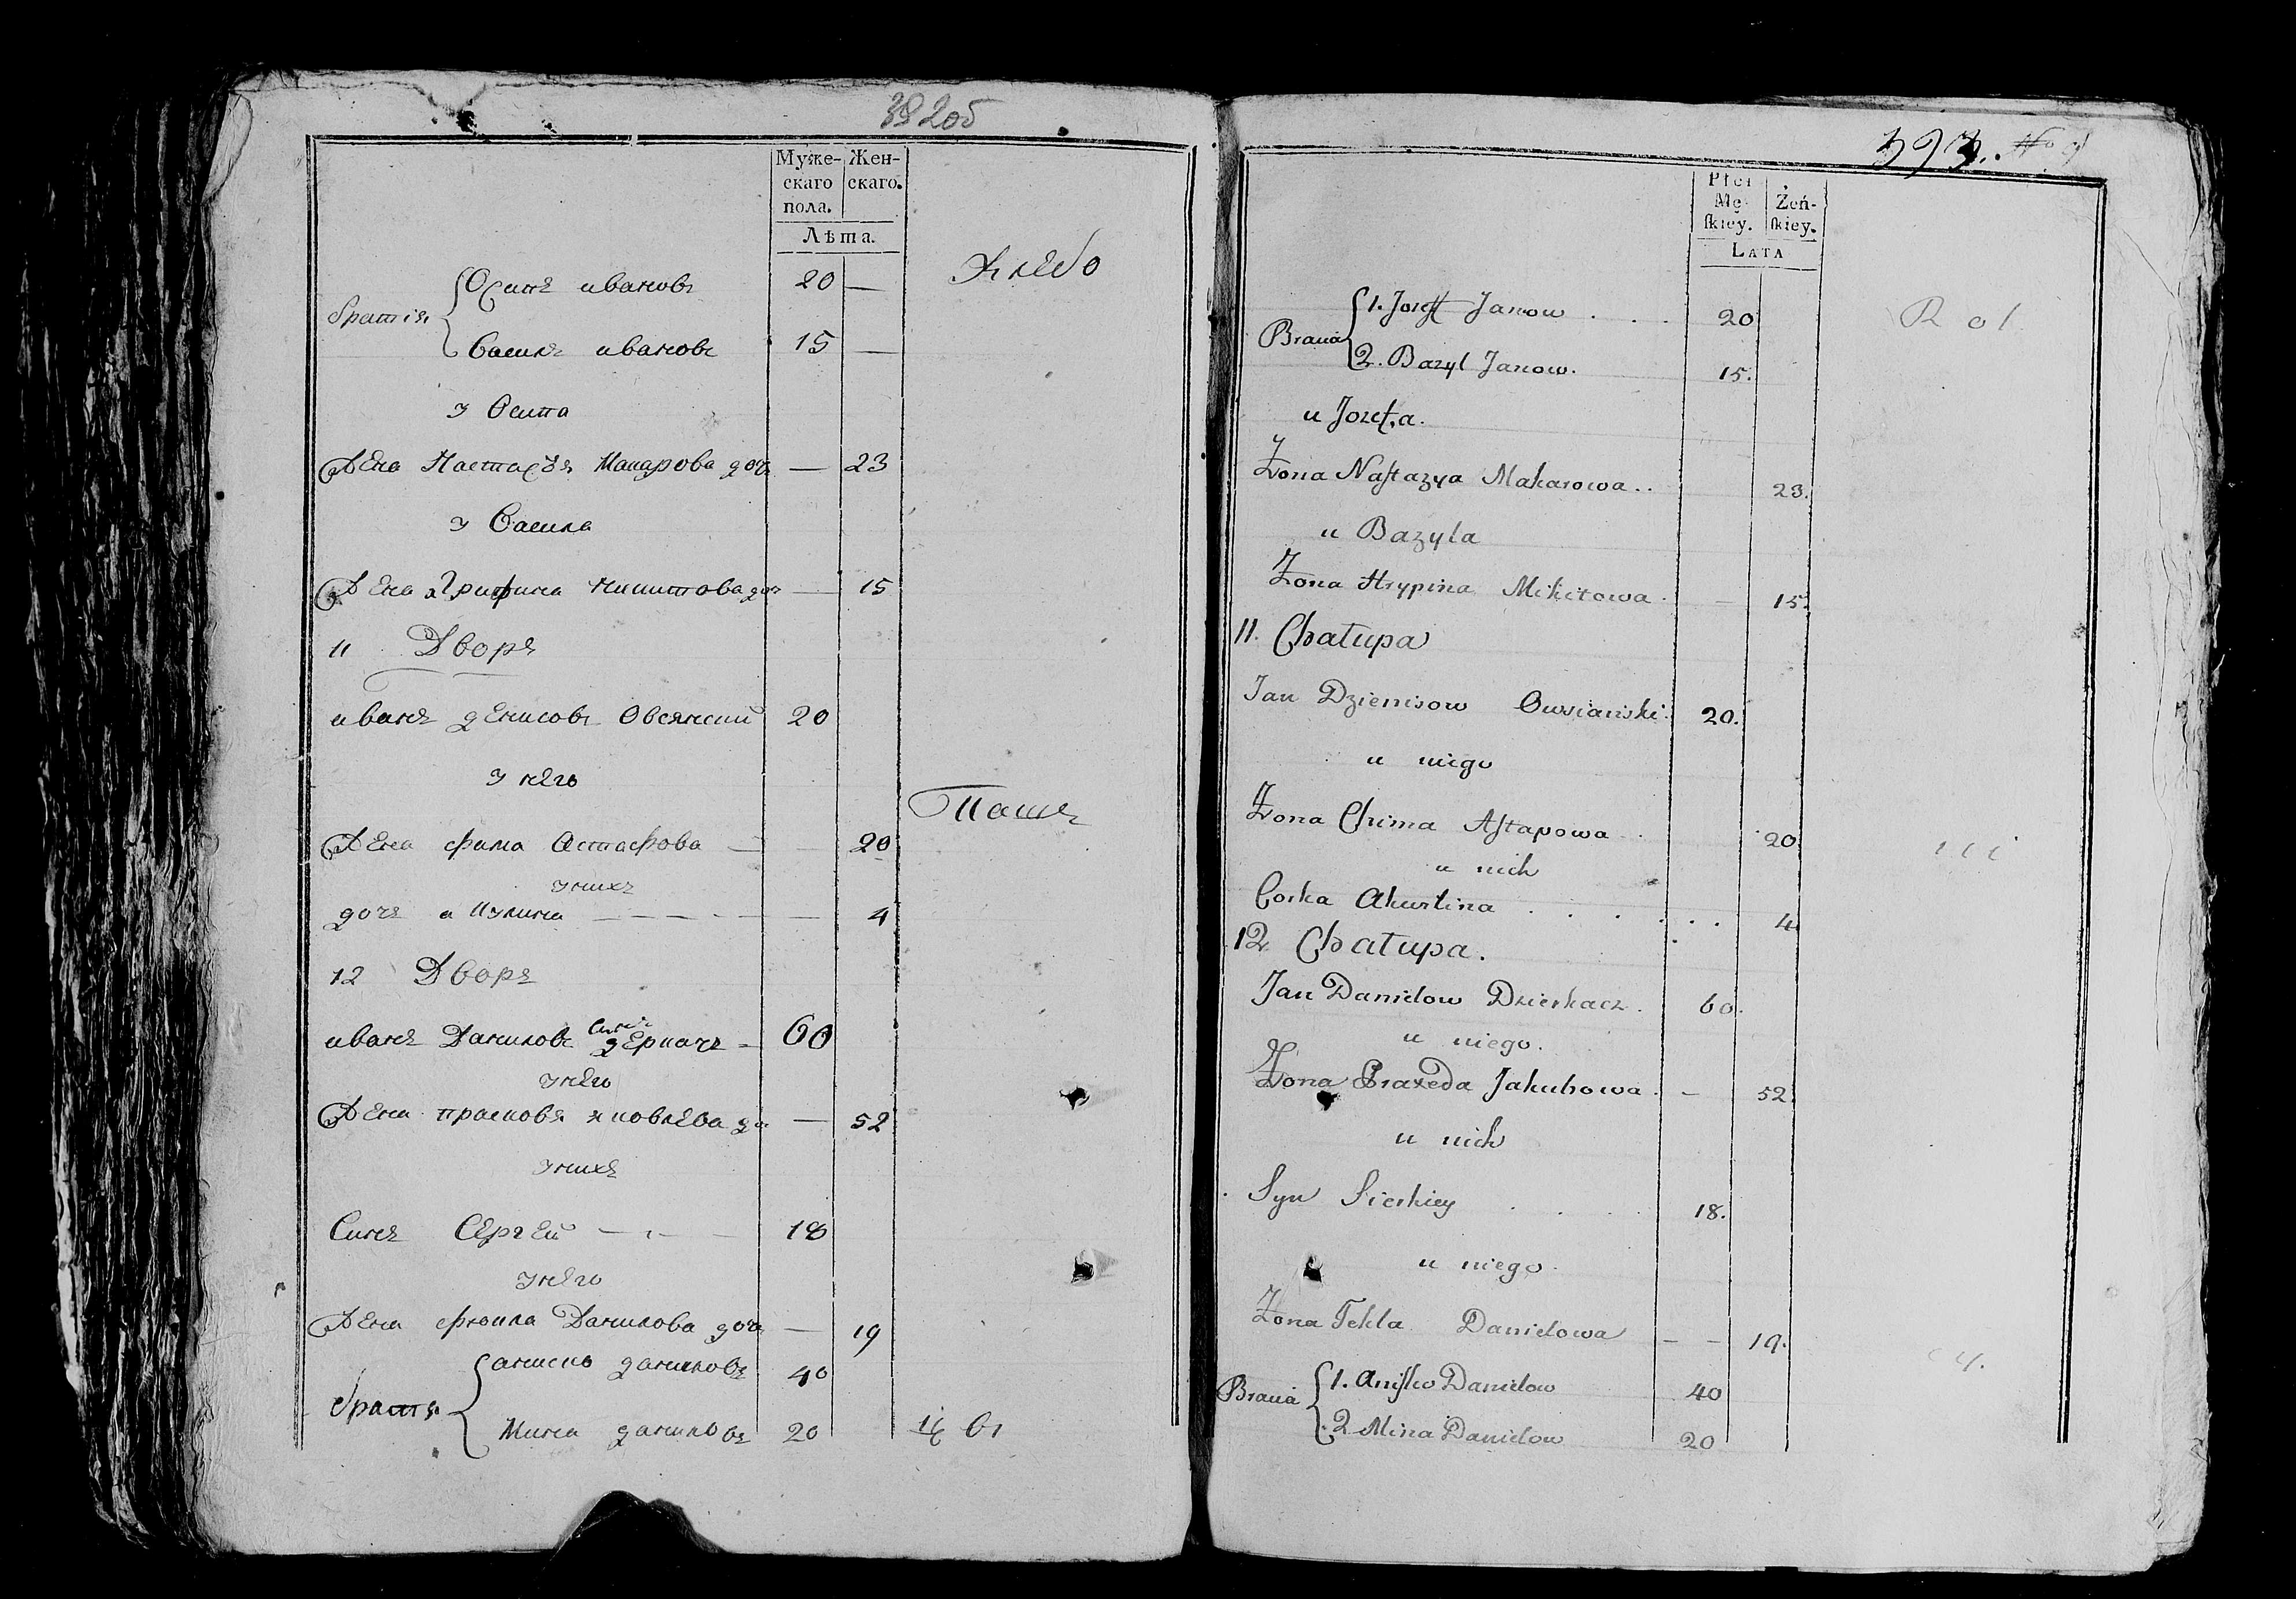 392об
Муже- Жен-
скаго скаго.
пола.
Лѣта.
Осипъ ивановъ 20 —
братія
Василъ ивановъ 15 —
у Осипа
Жена Настасъя Макарова доч — 23
у Василя
Жена Грипина Никитова доч — 15
11 Дворъ
иванъ денисовъ Овсянский 20
у него
Жена фима Остафова — 20
у нихъ
дочъ акулина — — — — 4
12 Дворъ
иванъ Даниловъ Синъ деркачъ — 60
у него
Жена прасковя яковлева до — 52
у нихъ
Синъ Сергей — — 18
у него
Жена фюкла Данилова доч — 19
аниско даниловъ 40
братя
Мина даниловъ 20
Хлебо
Пашъ
цъ въ
393. No 9
Płci
Mę- Żeń-
ſkiey. ſkiey.
LATA
1. Jozeff Janow . . . 20
Bracia
2. Bazyl Janow. 15.
u Jozefa.
Żona Naſtazya Makarowa . . 23.
u Bazyla
Żona Hrypina Mikitowa — 15.
11. Chałupa
Jan Dzienisow Owsianski 20.
u niego
Żona Chima Aſtapowa 20
u nich
Corka Akurlina . . . . . . 4
12 Chałupa.
Jan Daniełow Dzierkacz. 60.
u niego.
Żona Praxeda Jakubowa. — 52.
u nich
Syn Sierhiey . . . . 18.
u niego.
Żona Tekla Daniełowa — — 19.
1. Aniſko Daniełow 40
Bracia
2 Mina Daniełow 20
R ol